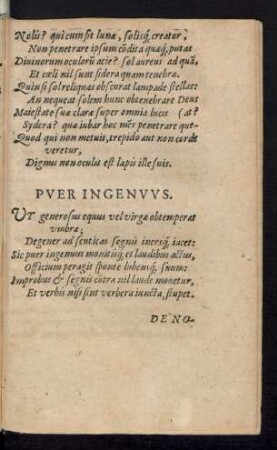 Nolis? qui cum sit lunæ, solisq́, creator,
Non penetrare ipsum cōdita quæq́, putas
Diuinorum oculorū acie? sol aureus ad quā,
Et cœli nil sunt sidera quam tenebræ.
Quin si sol reliquas obscurat lampade stellas:
An nequeat solem hunc obtenebrare Deus
Maiestate suæ claræ super omnia lucis (at?
Sydera? quæ iubar hoc mēs penetrare que-
Quod qui non metuit, trepido aut non corde
veretur,
Dignus non oculis est lapis ille suis.
PVER INGENVVS.
VT generosus equus vel virgæ obtemperat
vmbræ;
Degener ad senticas segnis inersq́, iacet:
Sic puer ingenuus monitisq́, et laudibus actus,
Officium peragit sponte lubensq́, suum:
Improbus & segnis cōtrà nil laude monetur,
Et verbis nisi sint verbera iuncta, stupet.
DENO-